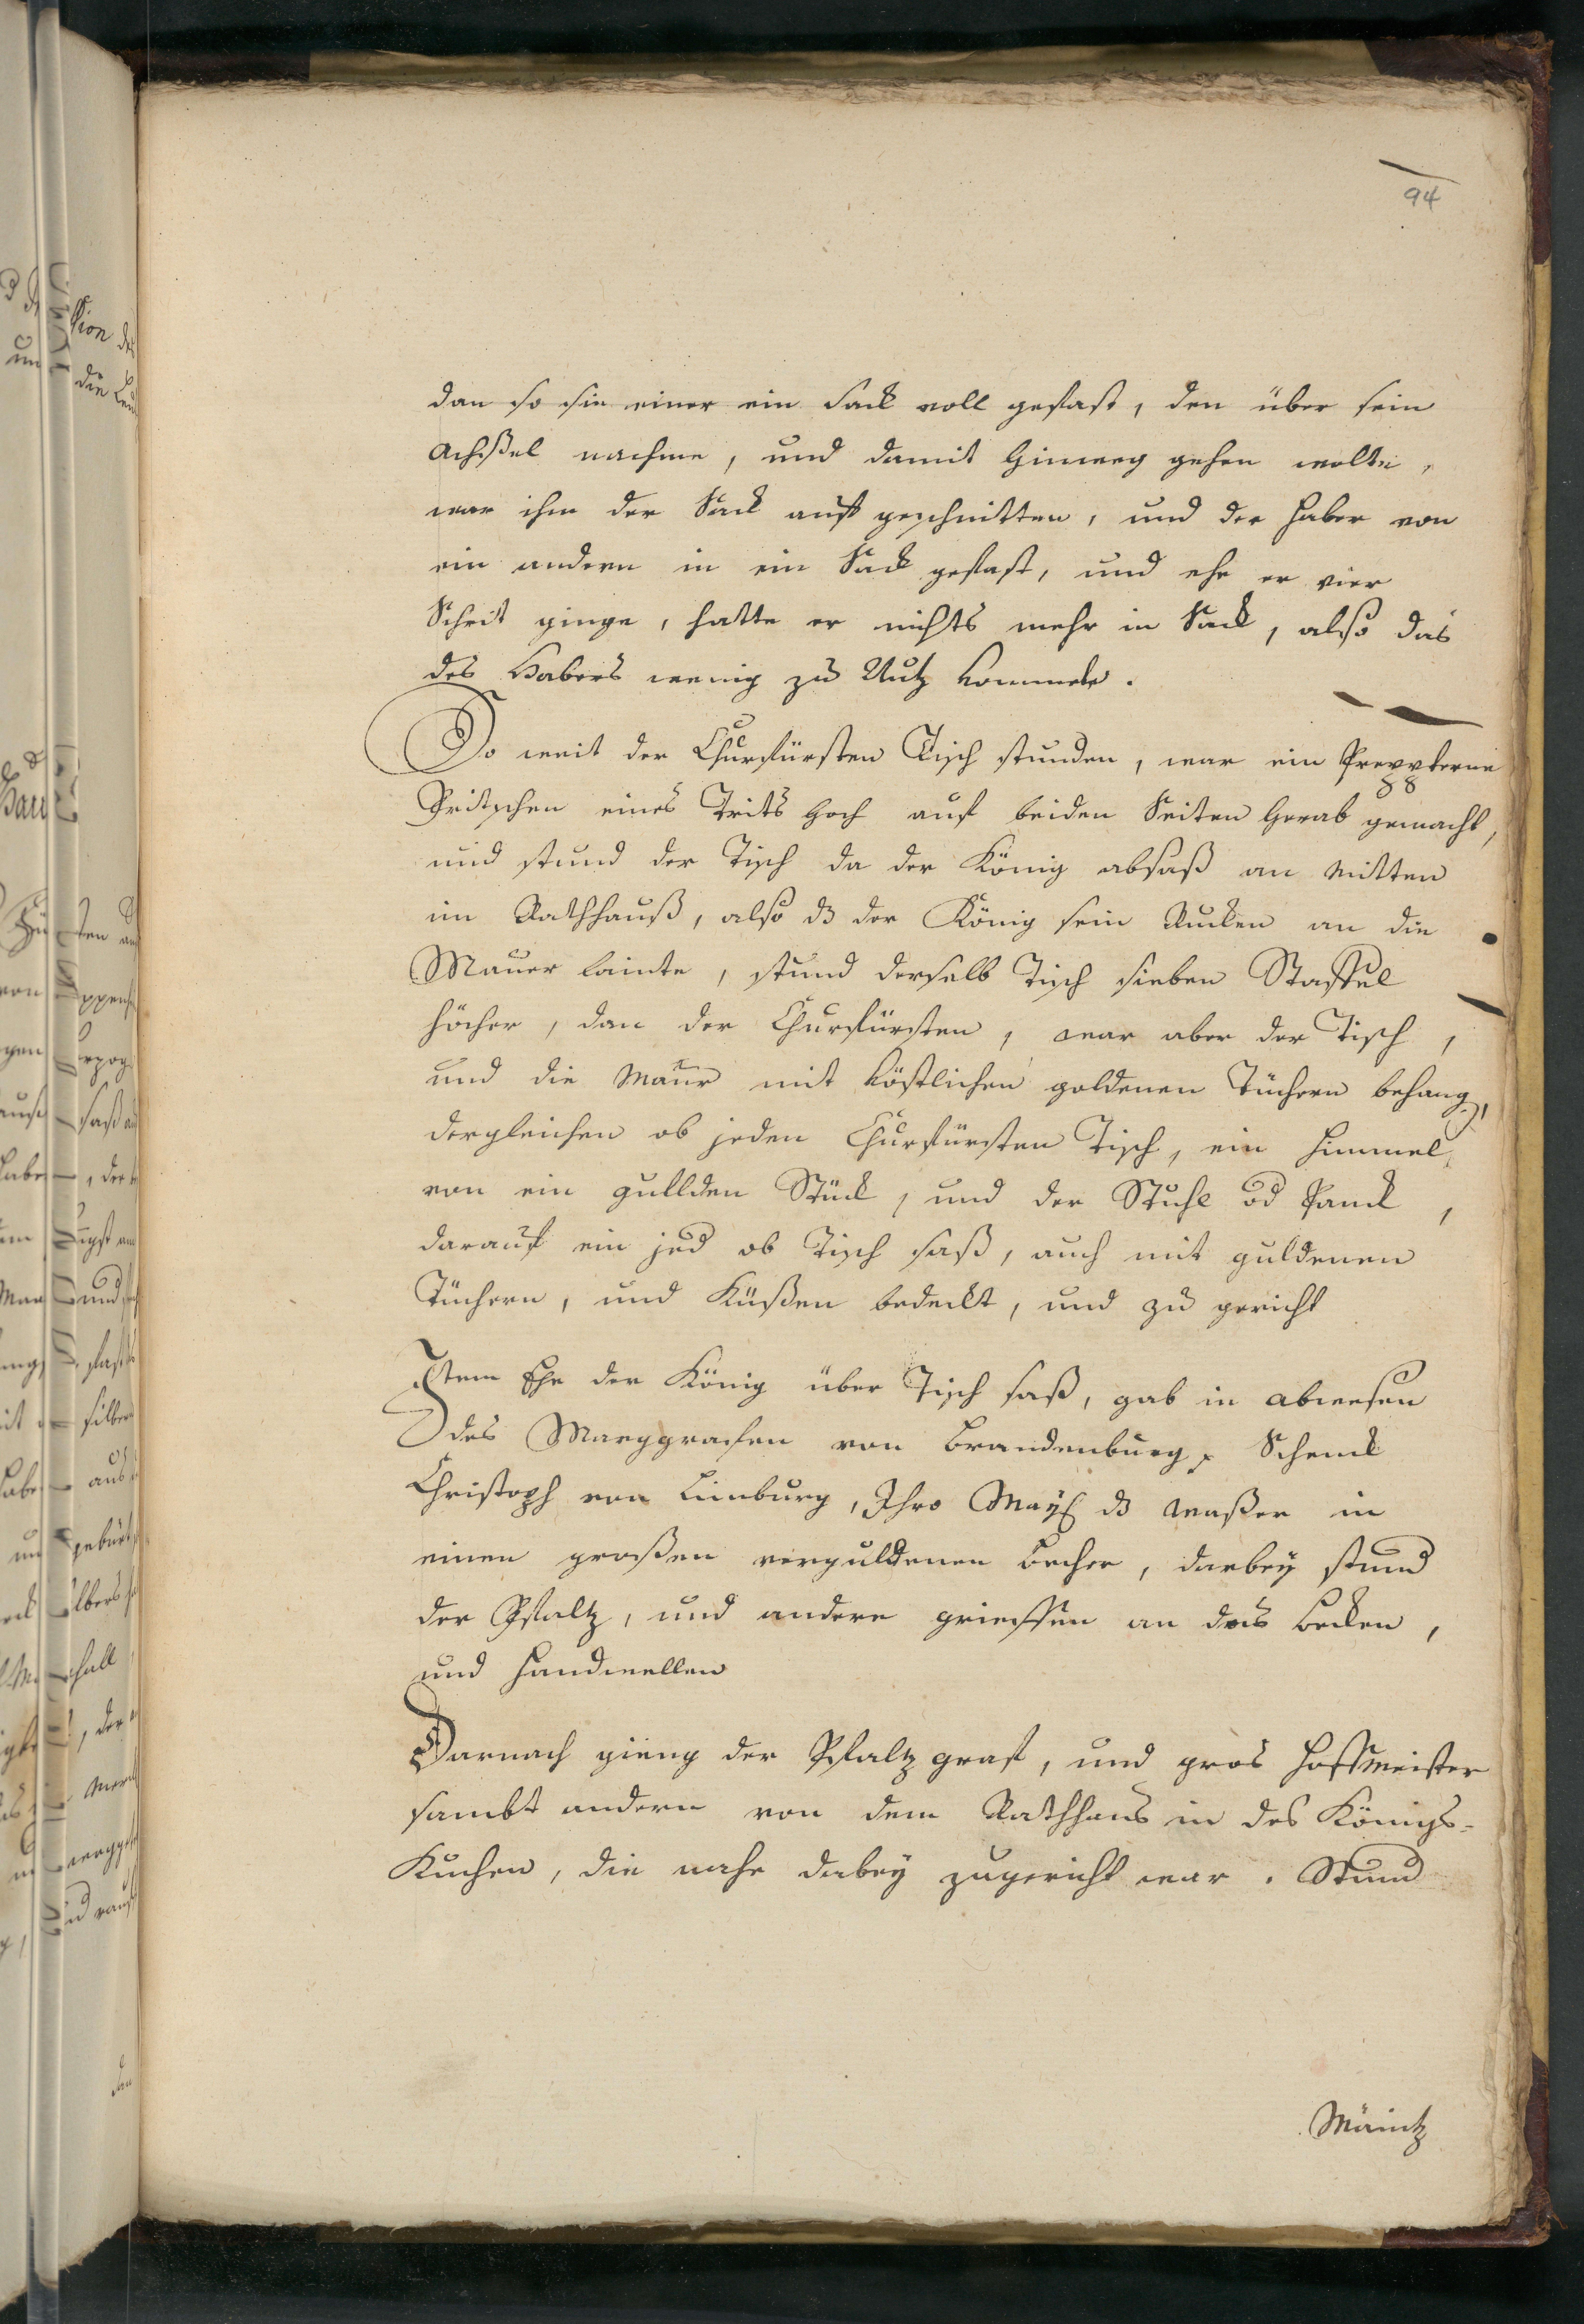 94
dan so sie einer ein Sack voll gefast, den über sein
Achßel nachme, und damit hinweg gehen wolte,
war ihm der Sack auf geschnitten, und der Haber von
ein andern in ein Sack gefast, und ehe er vier
Schrit ginge, hatte er nichts mehr in Sack, also das
des Habers wenig zu Nutz kommete.
So weit der Churfürsten Tisch stunden, war ein
Pritschen eines Trits hoch auf beiden Seiten herab gemacht,
und stund der Tisch da der König obsaß an mitten
im Rathhauß, also dz der König sein Rucken an die
Mauer lainte, stund derselb Tisch sieben Staffel
höcher, dan der Churfürsten, war aber der Tisch,
und die Maur mit köstlichen goldenen Tüchern behang,
dergleichen ob jeden Churfürsten Tisch, ein Himmel,
von ein gullden Stück, und der Stuhl od Panck,
darauf ein jed ob Tisch saß, auch mit guldenen
Tüchern, und Küßen bedeckt, und zu gericht
Item Ehe der König über Tisch saß, gab in abwesen
des Marggrafen von Brandenburg, Schenck
Christoph von Limburg, Ihro May dz Waßer in
einen großen verguldenen Becher, darbey stund
der Pfaltz, und andere grieffen an das Becken,
und Handwellen
Darnach gieng der Pfaltzgraf, und gros Hoffmeister
sambt andern von dem Rathhaus in des Königs-
Kuchen, die nahe dabey zugericht war. Stund
Mäintz